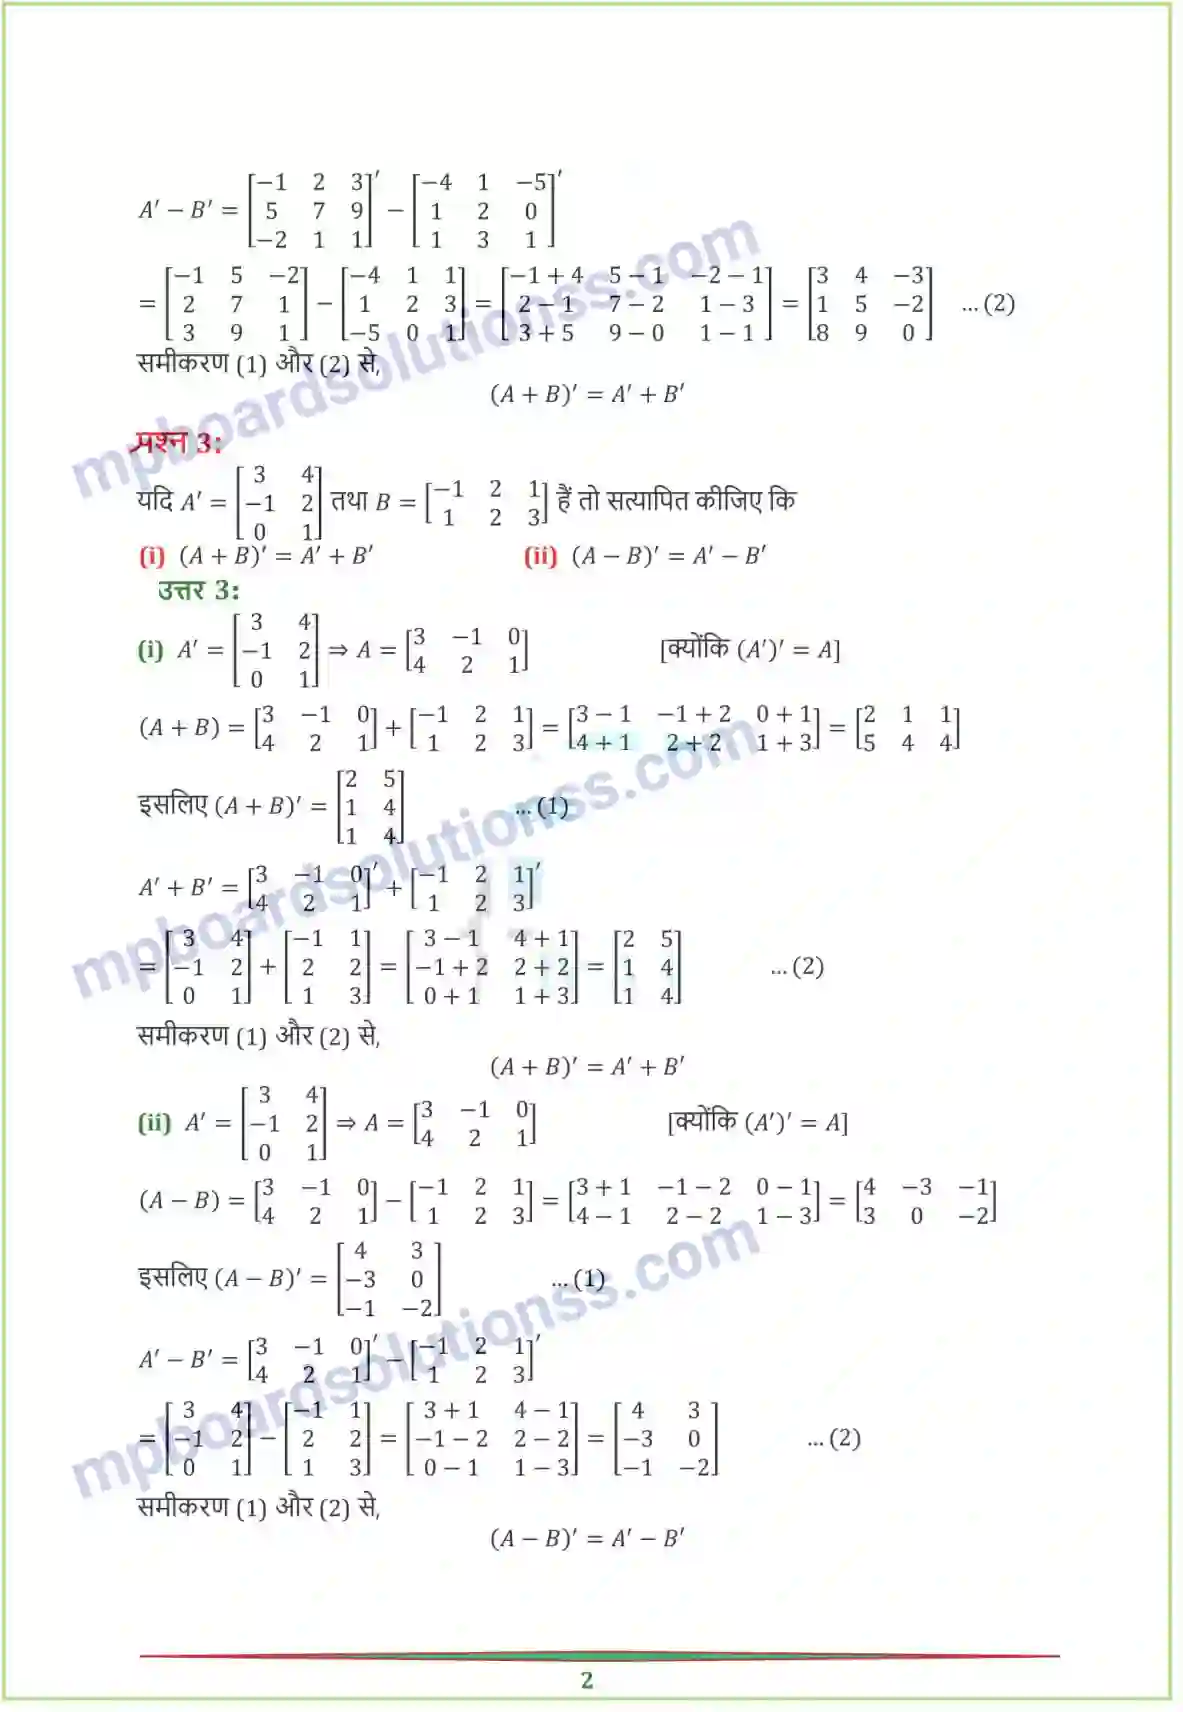 A′ − B′ = [−1 2 3; 5 7 9; −2 1 1]′ − [−4 1 −5; 1 2 0; 1 3 1]′
= [−1 5 −2; 2 7 1; 3 9 1] − [−4 1 1; 1 2 3; −5 0 1] = [−1 + 4 5 − 1 −2 − 1; 2 − 1 7 − 2 1 − 3; 3 + 5 9 − 0 1 − 1] = [3 4 −3; 1 5 −2; 8 9 0] … (2)
समीकरण (1) और (2) से,
(A + B)′ = A′ + B′
प्रश्न 3:
यदि A′ = [3 4; −1 2; 0 1] तथा B = [−1 2 1; 1 2 3] हैं तो सत्यापित कीजिए कि
(i) (A + B)′ = A′ + B′ (ii) (A − B)′ = A′ − B′
उत्तर 3:
(i) A′ = [3 4; −1 2; 0 1] ⇒ A = [3 −1 0; 4 2 1] [क्योंकि (A′)′ = A]
(A + B) = [3 −1 0; 4 2 1] + [−1 2 1; 1 2 3] = [3 − 1 −1 + 2 0 + 1; 4 + 1 2 + 2 1 + 3] = [2 1 1; 5 4 4]
इसलिए (A + B)′ = [2 5; 1 4; 1 4] … (1)
A′ + B′ = [3 −1 0; 4 2 1]′ + [−1 2 1; 1 2 3]′
= [3 4; −1 2; 0 1] + [−1 1; 2 2; 1 3] = [3 − 1 4 + 1; −1 + 2 2 + 2; 0 + 1 1 + 3] = [2 5; 1 4; 1 4] … (2)
समीकरण (1) और (2) से,
(A + B)′ = A′ + B′
(ii) A′ = [3 4; −1 2; 0 1] ⇒ A = [3 −1 0; 4 2 1] [क्योंकि (A′)′ = A]
(A − B) = [3 −1 0; 4 2 1] − [−1 2 1; 1 2 3] = [3 + 1 −1 − 2 0 − 1; 4 − 1 2 − 2 1 − 3] = [4 −3 −1; 3 0 −2]
इसलिए (A − B)′ = [4 3; −3 0; −1 −2] … (1)
A′ − B′ = [3 −1 0; 4 2 1]′ − [−1 2 1; 1 2 3]′
= [3 4; −1 2; 0 1] − [−1 1; 2 2; 1 3] = [3 + 1 4 − 1; −1 − 2 2 − 2; 0 − 1 1 − 3] = [4 3; −3 0; −1 −2] … (2)
समीकरण (1) और (2) से,
(A − B)′ = A′ − B′
2
mpboardsolutionss.com
mpboardsolutionss.com
mpboardsolutionss.com